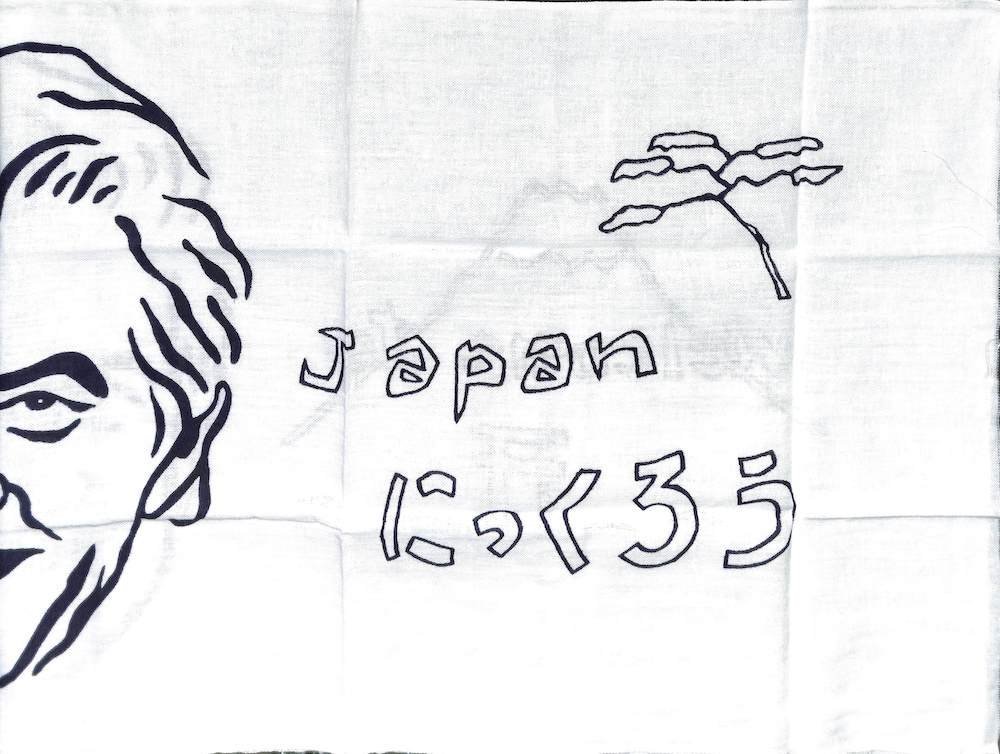 Japan
にっくろう